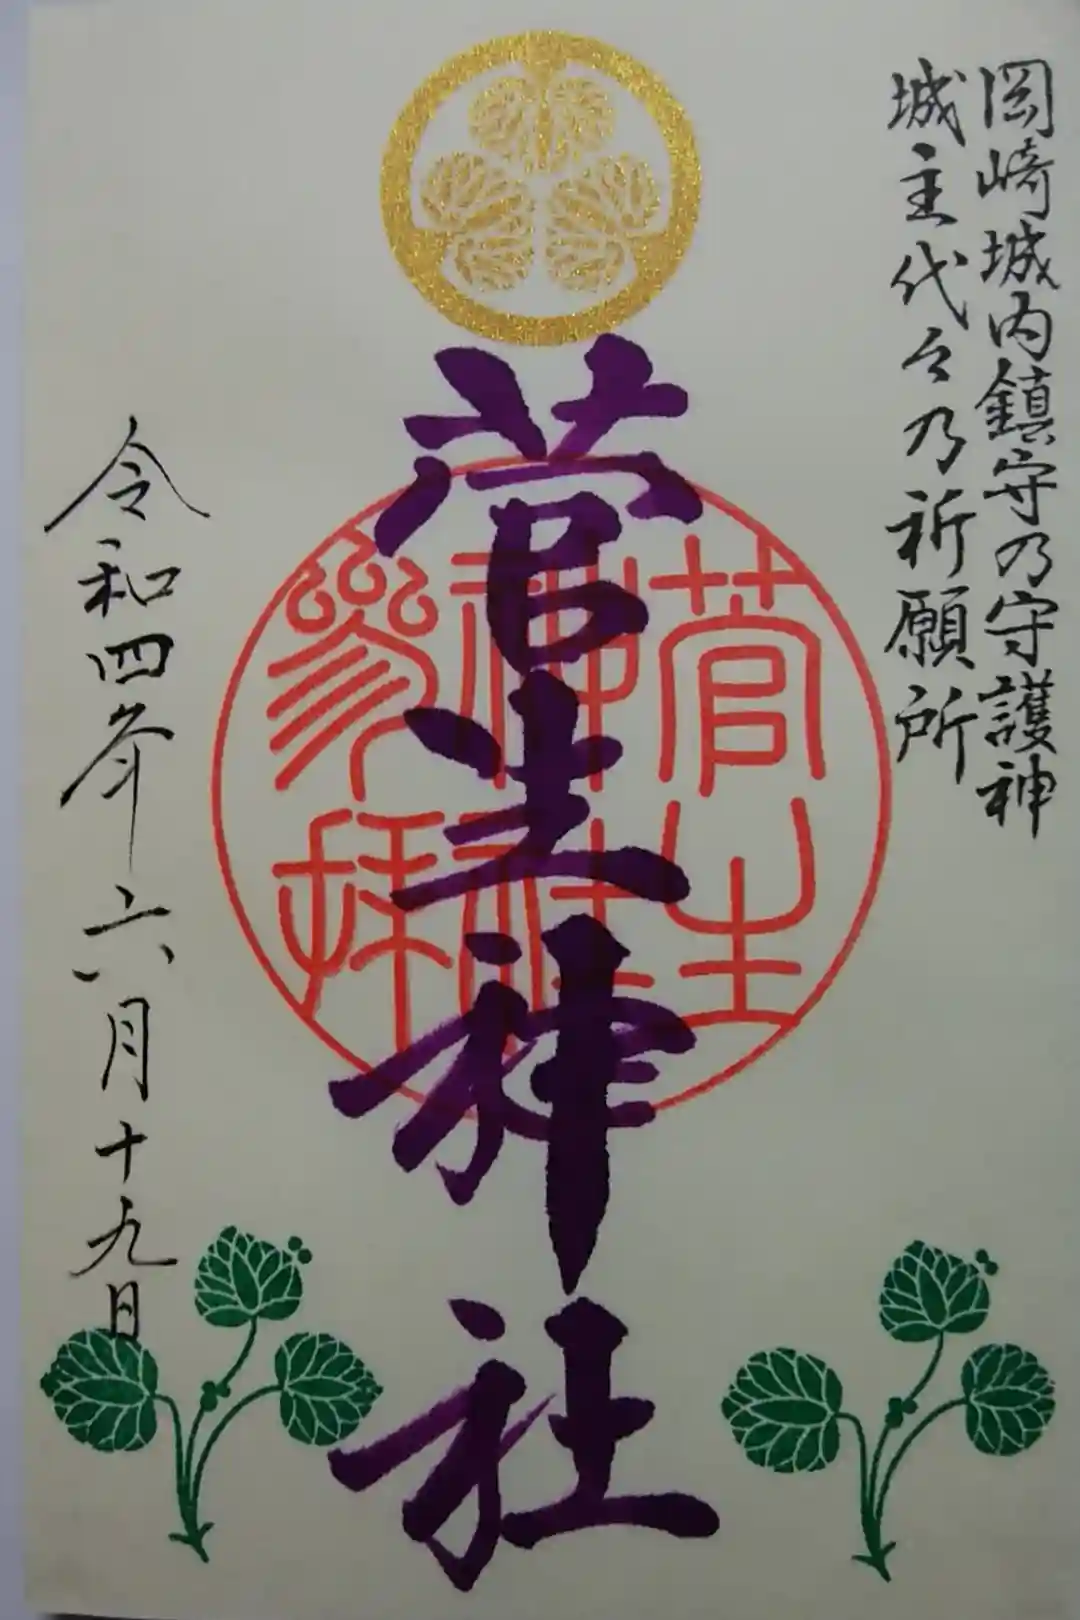 岡崎城内鎮守乃守護神
城主代々乃祈願所
菅生神社
菅生
神社
参拝
令和四年六月十九日